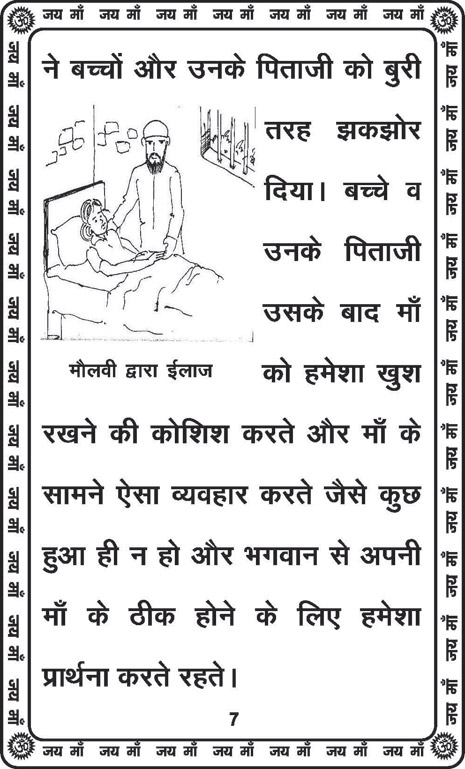 जय माँ जय माँ जय माँ जय माँ जय माँ जय माँ जय माँ
ने बच्चों और उनके पिताजी को बुरी
तरह झकझोर
दिया। बच्चे व
उनके पिताजी
उसके बाद माँ
मौलवी द्वारा ईलाज
को हमेशा खुश
रखने की कोशिश करते और माँ के
सामने ऐसा व्यवहार करते जैसे कुछ
हुआ ही न हो और भगवान से अपनी
माँ के ठीक होने के लिए हमेशा
प्रार्थना करते रहते।
7
जय माँ जय माँ जय माँ जय माँ जय माँ जय माँ जय माँ
जय माँ जय माँ जय माँ जय माँ जय माँ जय माँ जय माँ जय माँ जय माँ जय माँ जय माँ
जय माँ जय माँ जय माँ जय माँ जय माँ जय माँ जय माँ जय माँ जय माँ जय माँ जय माँ
ॐ
ॐ
ॐ
ॐ